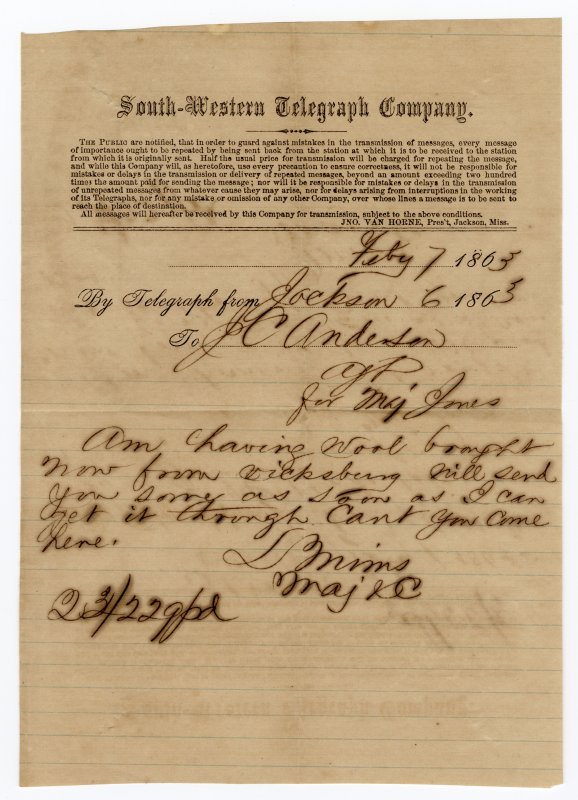 South-Western Telegraph Company.
THE PUBLIC are notified, that in order to guard against mistakes in the transmission of messages, every message
of importance ought to be repeated by being sent back from the station at which it is to be received to the station
from which it is originally sent. Half the usual price for transmission will be charged for repeating the message,
and while this Company will, as heretofore, use every precaution to ensure correctness, it will not be responsible for
mistakes or delays in the transmission or delivery of repeated messages, beyond an amount exceeding two hundred
times the amount paid for sending the message; nor will it be responsible for mistakes or delays in the transmission
of unrepeated messages from whatever cause they may arise, nor for delays arising from interruptions in the working
of its Telegraphs, nor for any mistake or omission of any other Company, over whose lines a message is to be sent to
reach the place of destination.
All messages will hereafter be received by this Company for transmission, subject to the above conditions.
JNO. VAN HORNE, Pres't, Jackson, Miss.
Feby 7 1863
By Telegraph from Jackson 6 1863
To J C Anderson
for Maj Jones
Am having Wool bought
now from vicksburg Will send
you some as soon as I can
get it through Cant you come
here.
L Mims
Maj &C